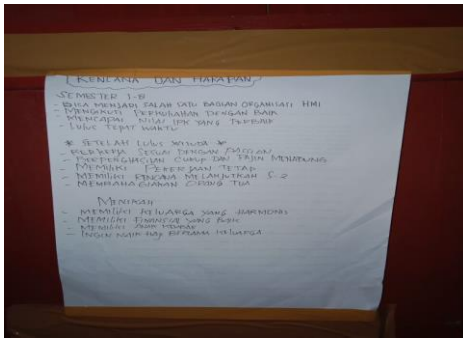 RENCANA DAN HARAPAN
SEMESTER 1-8
- BISA MENJADI SALAH SATU BAGIAN ORGANISASI HMI
- MENGIKUTI PERKULIAHAN DENGAN BAIK
- MENCAPAI NILAI IPK YANG TERBAIK
- LULUS TEPAT WAKTU
* SETELAH LULUS WISUDA *
- BEKERJA SESUAI DENGAN PASSION
- BERPENGHASILAN CUKUP DAN RAJIN MENABUNG
- MEMILIKI PEKERJAAN TETAP
- MEMILIKI RENCANA MELANJUTKAN S-2
- MEMBAHAGIAKAN ORANG TUA
MENIKAH
- MEMILIKI KELUARGA YANG HARMONIS
- MEMILIKI FINANSIAL YANG BAIK
- MEMILIKI
- INGIN NAIK HAJI BERSAMA KELUARGA